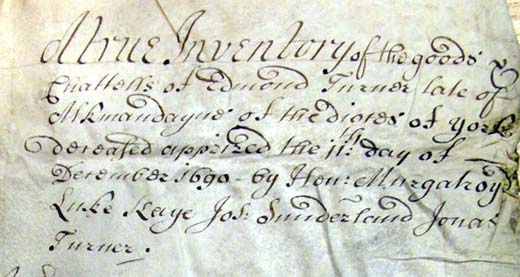 A true Inventory of the goods &
Chattells of Edmond Turner late of
Mkmandayne of the dioces of York
deceased apprized the 11th day of
December 1690 - by Hen: Murgatroyd
Luke Kaye Jos: Sunderland Jonas
Turner.